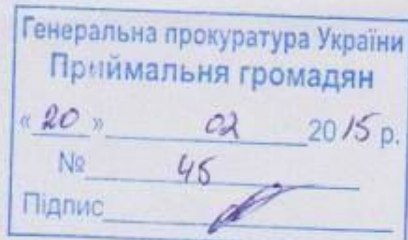 Генеральна прокуратура України
Приймальня громадян
«20» 02 2015 р.
№ 45
Підпис